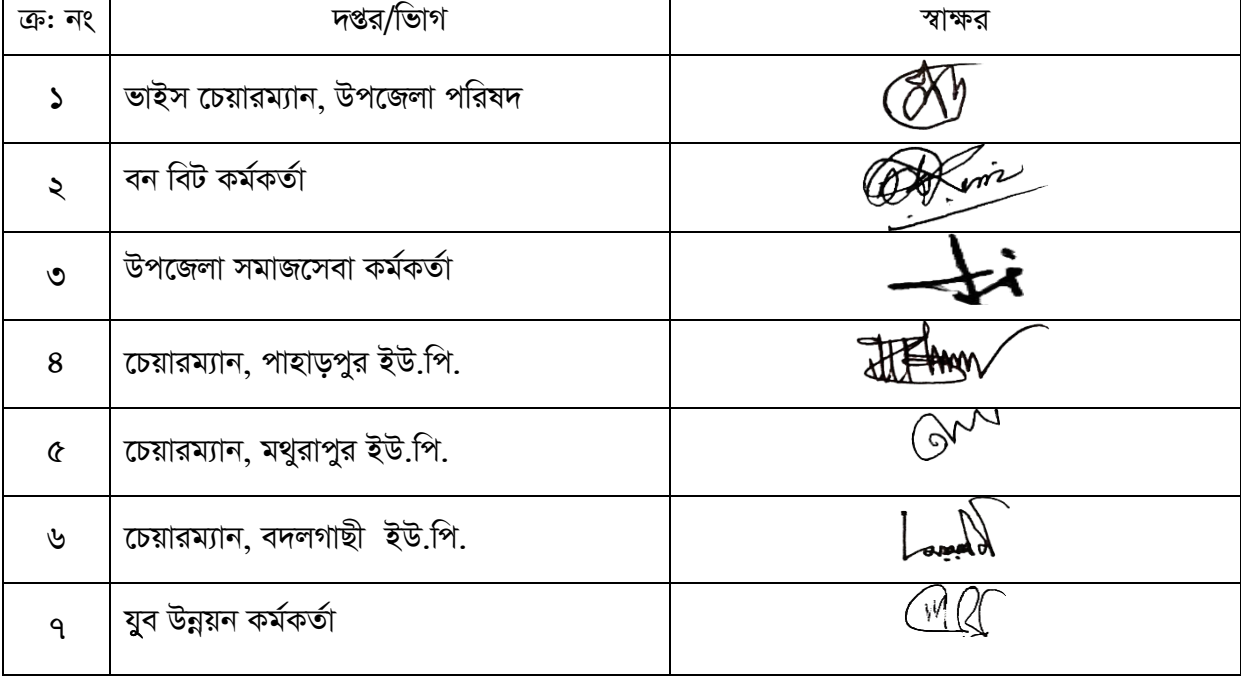 ক্র: নং দপ্তর/ভিাগ স্বাক্ষর
১ ভাইস চেয়ারম্যান, উপজেলা পরিষদ
২ বন বিট কর্মকর্তা
৩ উপজেলা সমাজসেবা কর্মকর্তা
৪ চেয়ারম্যান, পাহাড়পুর ইউ.পি.
৫ চেয়ারম্যান, মথুরাপুর ইউ.পি.
৬ চেয়ারম্যান, বদলগাছী ইউ.পি.
৭ যুব উন্নয়ন কর্মকর্তা